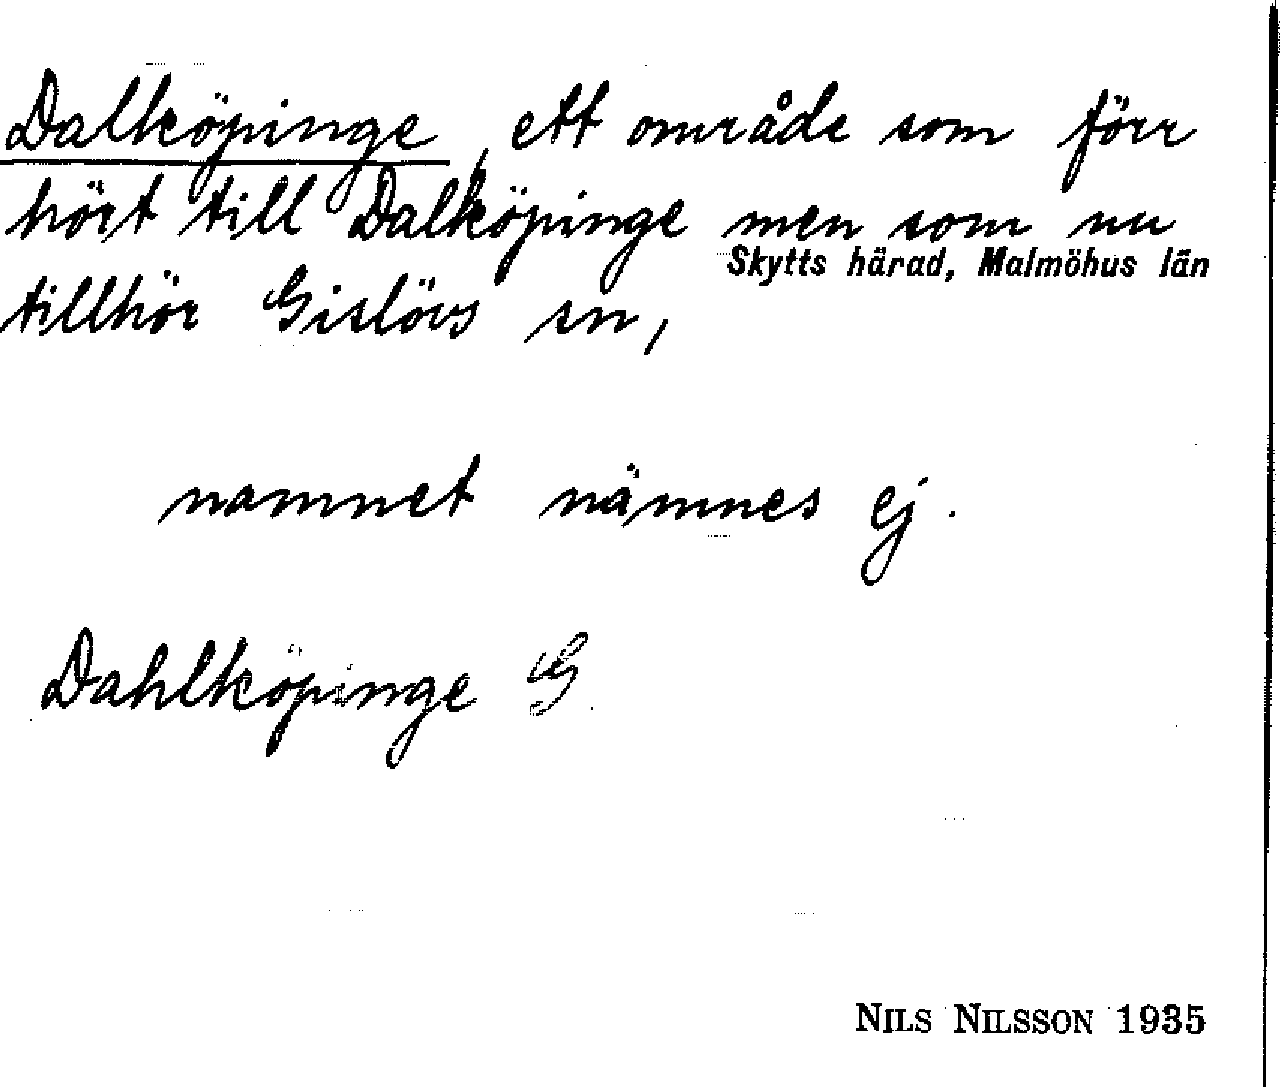 Dalköpinge, ett område som förr
hört till Dalköpinge men som nu
Skytts härad, Malmöhus län
tillhör Gislövs sn,
namnet nämnes ej.
Dahlköpinge G
NILS NILSSON 1935